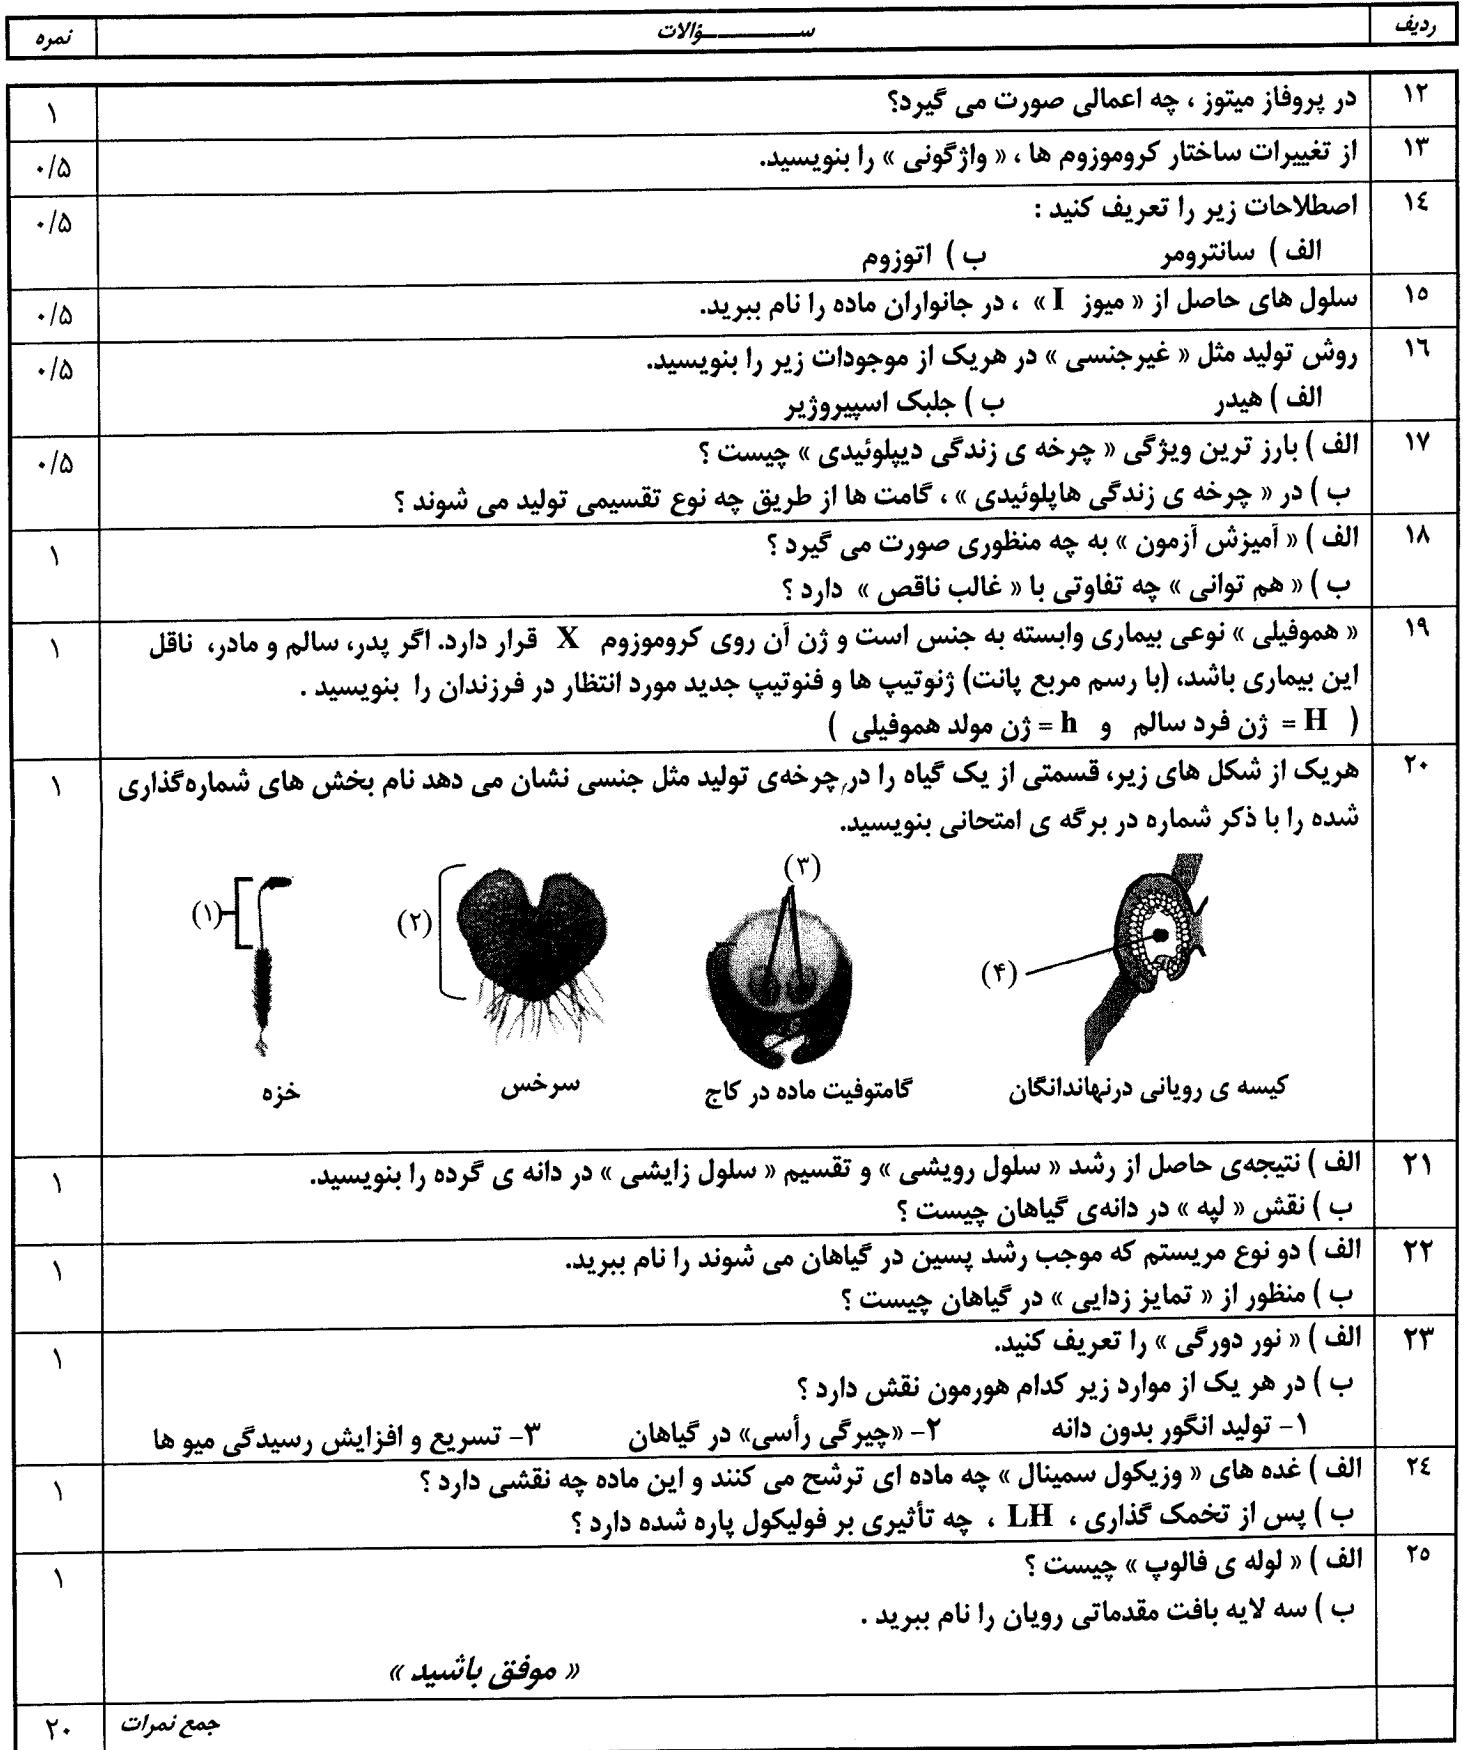 ردیف ســـــــــؤالات نمره
۱۲ در پروفاز میتوز ، چه اعمالی صورت می گیرد؟ ۱
۱۳ از تغییرات ساختار کروموزوم ها ، « واژگونی » را بنویسید. ۰/۵
۱٤ اصطلاحات زیر را تعریف کنید : ۰/۵
الف ) سانترومر ب ) اتوزوم
۱٥ سلول های حاصل از « میوز I » ، در جانواران ماده را نام ببرید. ۰/۵
۱٦ روش تولید مثل « غیرجنسی » در هریک از موجودات زیر را بنویسید. ۰/۵
الف ) هیدر ب ) جلبک اسپیروژیر
۱۷ الف ) بارز ترین ویژگی « چرخه ی زندگی دیپلوئیدی » چیست ؟ ۰/۵
ب ) در « چرخه ی زندگی هاپلوئیدی » ، گامت ها از طریق چه نوع تقسیمی تولید می شوند ؟
۱۸ الف ) « آمیزش آزمون » به چه منظوری صورت می گیرد ؟ ۱
ب ) « هم توانی » چه تفاوتی با « غالب ناقص » دارد ؟
۱۹ « هموفیلی » نوعی بیماری وابسته به جنس است و ژن آن روی کروموزوم X قرار دارد. اگر پدر، سالم و مادر، ناقل ۱
این بیماری باشد، (با رسم مربع پانت) ژنوتیپ ها و فنوتیپ جدید مورد انتظار در فرزندان را بنویسید .
( H = ژن فرد سالم و h = ژن مولد هموفیلی )
۲۰ هریک از شکل های زیر، قسمتی از یک گیاه را در چرخه‌ی تولید مثل جنسی نشان می دهد نام بخش های شماره‌گذاری ۱
شده را با ذکر شماره در برگه ی امتحانی بنویسید.
(۴) (۳) (۲) (۱)
کیسه ی رویانی درنهاندانگان گامتوفیت ماده در کاج سرخس خزه
۲۱ الف ) نتیجه‌ی حاصل از رشد « سلول رویشی » و تقسیم « سلول زایشی » در دانه ی گرده را بنویسید. ۱
ب ) نقش « لپه » در دانه‌ی گیاهان چیست ؟
۲۲ الف ) دو نوع مریستم که موجب رشد پسین در گیاهان می شوند را نام ببرید. ۱
ب ) منظور از « تمایز زدایی » در گیاهان چیست ؟
۲۳ الف ) « نور دورگی » را تعریف کنید. ۱
ب ) در هر یک از موارد زیر کدام هورمون نقش دارد ؟
۱- تولید انگور بدون دانه ۲- «چیرگی رأسی» در گیاهان ۳- تسریع و افزایش رسیدگی میو ها
۲٤ الف ) غده های « وزیکول سمینال » چه ماده ای ترشح می کنند و این ماده چه نقشی دارد ؟ ۱
ب ) پس از تخمک گذاری ، LH ، چه تأثیری بر فولیکول پاره شده دارد ؟
۲٥ الف ) « لوله ی فالوپ » چیست ؟ ۱
ب ) سه لایه بافت مقدماتی رویان را نام ببرید .
« موفق باشید »
جمع نمرات ۲۰